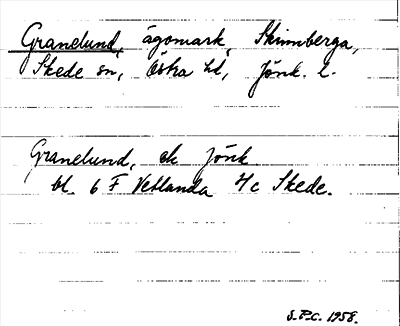 Granelund, ägomark, Skinnberga,
Skede sn, Östra hd, Jönk. l.
Granelund, ek Jönk
bl. 6 F Vetlanda 4/c Skede.
S.P.C. 1958.